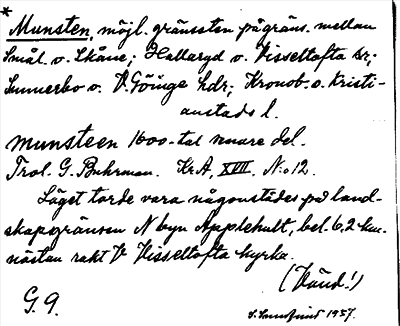 *
Munsten, möjl. gränssten på gräns. mellan
Smål. o. Skåne; Hallaryd o. Visseltofta snr;
Sunnerbo o. V. Göinge hdr; Kronob. o. Kristi-
anstads l.
munsteen 1600-tal senare del.
Trol. G. Buhrman. Kr.A, XVII, N:o 12.
Läget torde vara någonstädes på land-
skapgränsen N byn Applehult, bel. 6,2 km.
nästan rakt V Visseltofta kyrka.
(Vänd!)
G. 9.
S. Sundfind 1957.